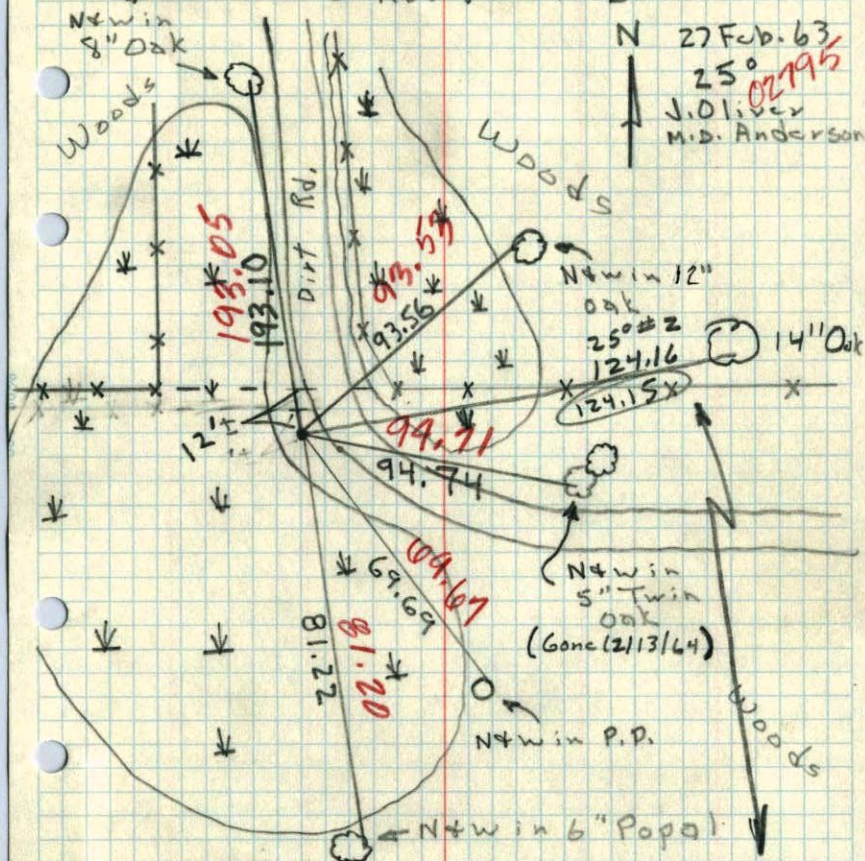 N&W in
8" Oak
N
27 Feb. 63
25°
02795
J. Oliver
M.D. Anderson
Woods
Woods
Dirt Rd.
193.05
193.10
93.53
93.56
N&W in 12"
oak
25° #2
124.16
124.15
14" Oak
12'±
94.71
94.74
N&W in
5" Twin
Oak
(Gone (2/13/64)
69.67
69.69
81.22
81.20
N&W in P.D.
Woods
N&W in 6" Popal